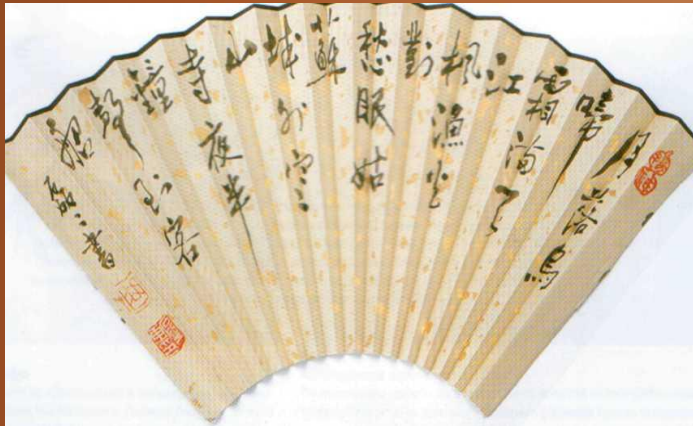 月落烏
啼
霜滿天
江
楓漁火
對
愁眠姑
蘇
城外寒
山
寺夜半
鐘
聲到客
船
書